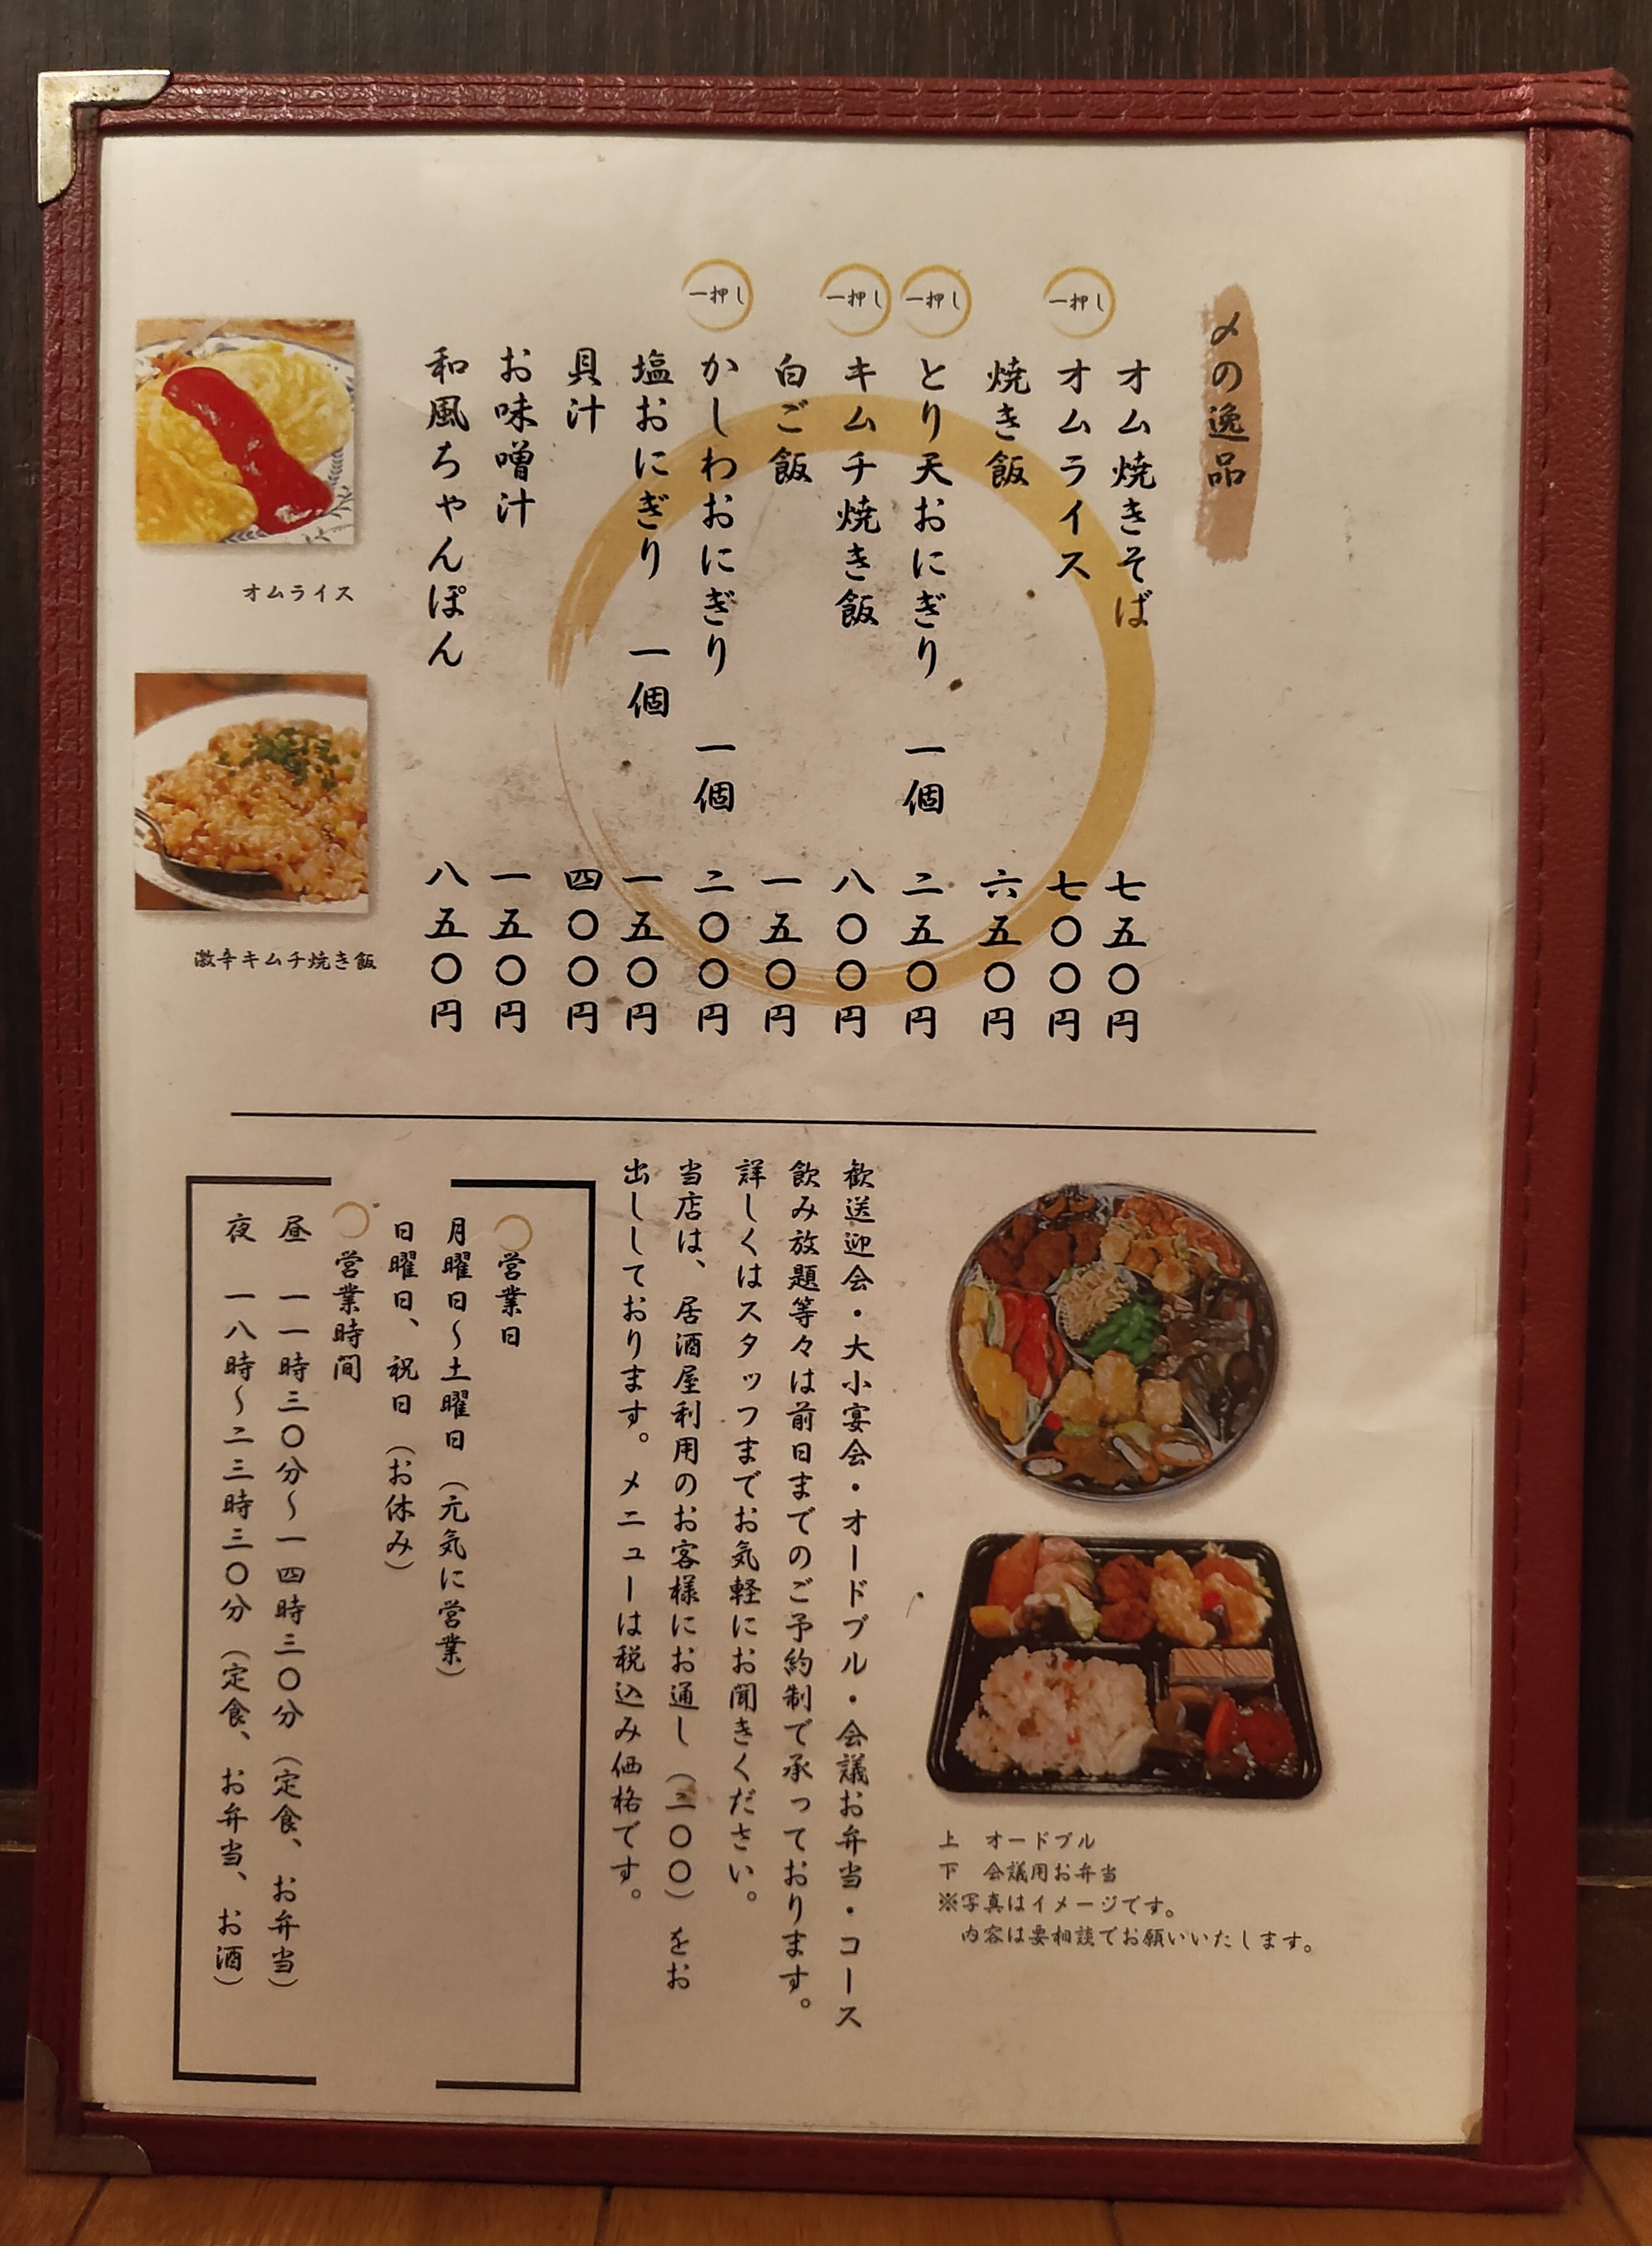 〆の逸品
オム焼きそば 七五〇円
一押し オムライス 七〇〇円
焼き飯 六五〇円
一押し とり天おにぎり 一個 二五〇円
一押し キムチ焼き飯 八〇〇円
白ご飯 一五〇円
一押し かしわおにぎり 一個 二〇〇円
塩おにぎり 一個 一五〇円
貝汁 四〇〇円
お味噌汁 一五〇円
和風ちゃんぽん 八五〇円
オムライス
激辛キムチ焼き飯
上 オードブル
下 会議用お弁当
※写真はイメージです。
内容は要相談でお願いいたします。
歓送迎会・大小宴会・オードブル・会議お弁当・コース
飲み放題等々は前日までのご予約制で承っております。
詳しくはスタッフまでお気軽にお聞きください。
当店は、居酒屋利用のお客様にお通し（二〇〇）をお
出ししております。メニューは税込み価格です。
〇営業日
月曜日～土曜日（元気に営業）
日曜日、祝日（お休み）
〇営業時間
昼 一一時三〇分～一四時三〇分（定食、お弁当）
夜 一八時～二三時三〇分（定食、お弁当、お酒）